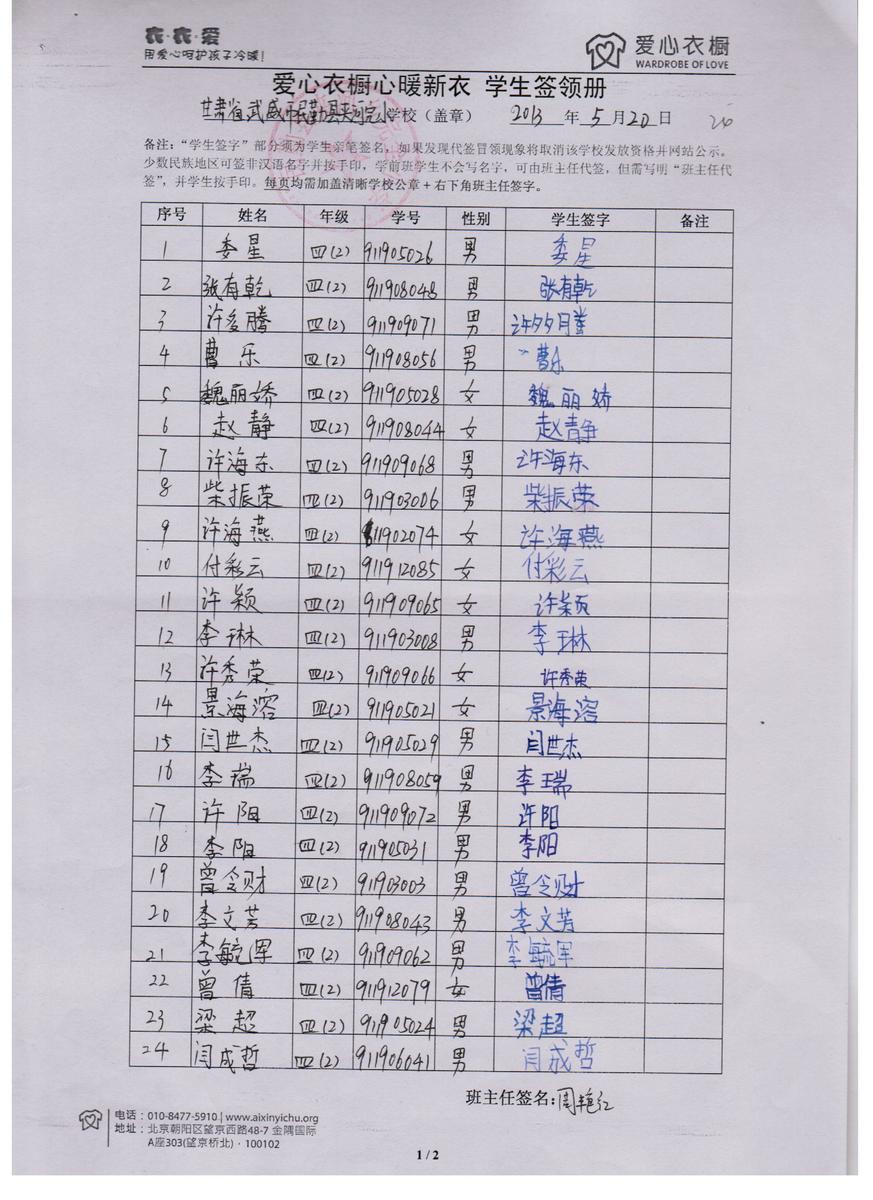 衣·衣·爱
用爱心呵护孩子冷暖!
爱心衣橱
WARDROBE OF LOVE
爱心衣橱心暖新衣 学生签领册
甘肃省武威市民勤县夹河完小学校（盖章） 2013 年 5 月 20 日
20
备注：“学生签字”部分须为学生亲笔签名，如果发现代签冒领现象将取消该学校发放资格并网站公示。
少数民族地区可签非汉语名字并按手印，学前班学生不会写名字，可由班主任代签，但需写明“班主任代
签”，并学生按手印。每页均需加盖清晰学校公章+右下角班主任签字。
序号 姓名 年级 学号 性别 学生签字 备注
1 娄星 四(2) 911905026 男 娄星
2 张有乾 四(2) 911908048 男 张有乾
3 许多腾 四(2) 911909071 男 许多腾
4 曹乐 四(2) 911908056 男 曹乐
5 魏丽娇 四(2) 911905028 女 魏丽娇
6 赵静 四(2) 911908044 女 赵静
7 许海东 四(2) 911909068 男 许海东
8 柴振荣 四(2) 911903006 男 柴振荣
9 许海燕 四(2) 811902074 女 许海燕
10 付彩云 四(2) 911912085 女 付彩云
11 许颖 四(2) 911909065 女 许颖
12 李琳 四(2) 911903008 男 李琳
13 许秀荣 四(2) 911909066 女 许秀荣
14 景海溶 四(2) 911905021 女 景海溶
15 闫世杰 四(2) 911905029 男 闫世杰
16 李瑞 四(2) 911908059 男 李瑞
17 许阳 四(2) 911909072 男 许阳
18 李阳 四(2) 911905031 男 李阳
19 曾令财 四(2) 911903003 男 曾令财
20 李文芳 四(2) 911908043 男 李文芳
21 李毓军 四(2) 911909062 男 李毓军
22 曾倩 四(2) 911912079 女 曾倩
23 梁超 四(2) 911905024 男 梁超
24 闫成哲 四(2) 911906041 男 闫成哲
班主任签名:周艳红
电话：010-8477-5910 | www.aixinyichu.org
地址：北京朝阳区望京西路48-7 金隅国际
A座303(望京桥北)·100102
1 / 2